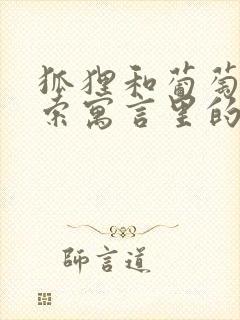 狐狸和葡萄
索寓言里的
師言道